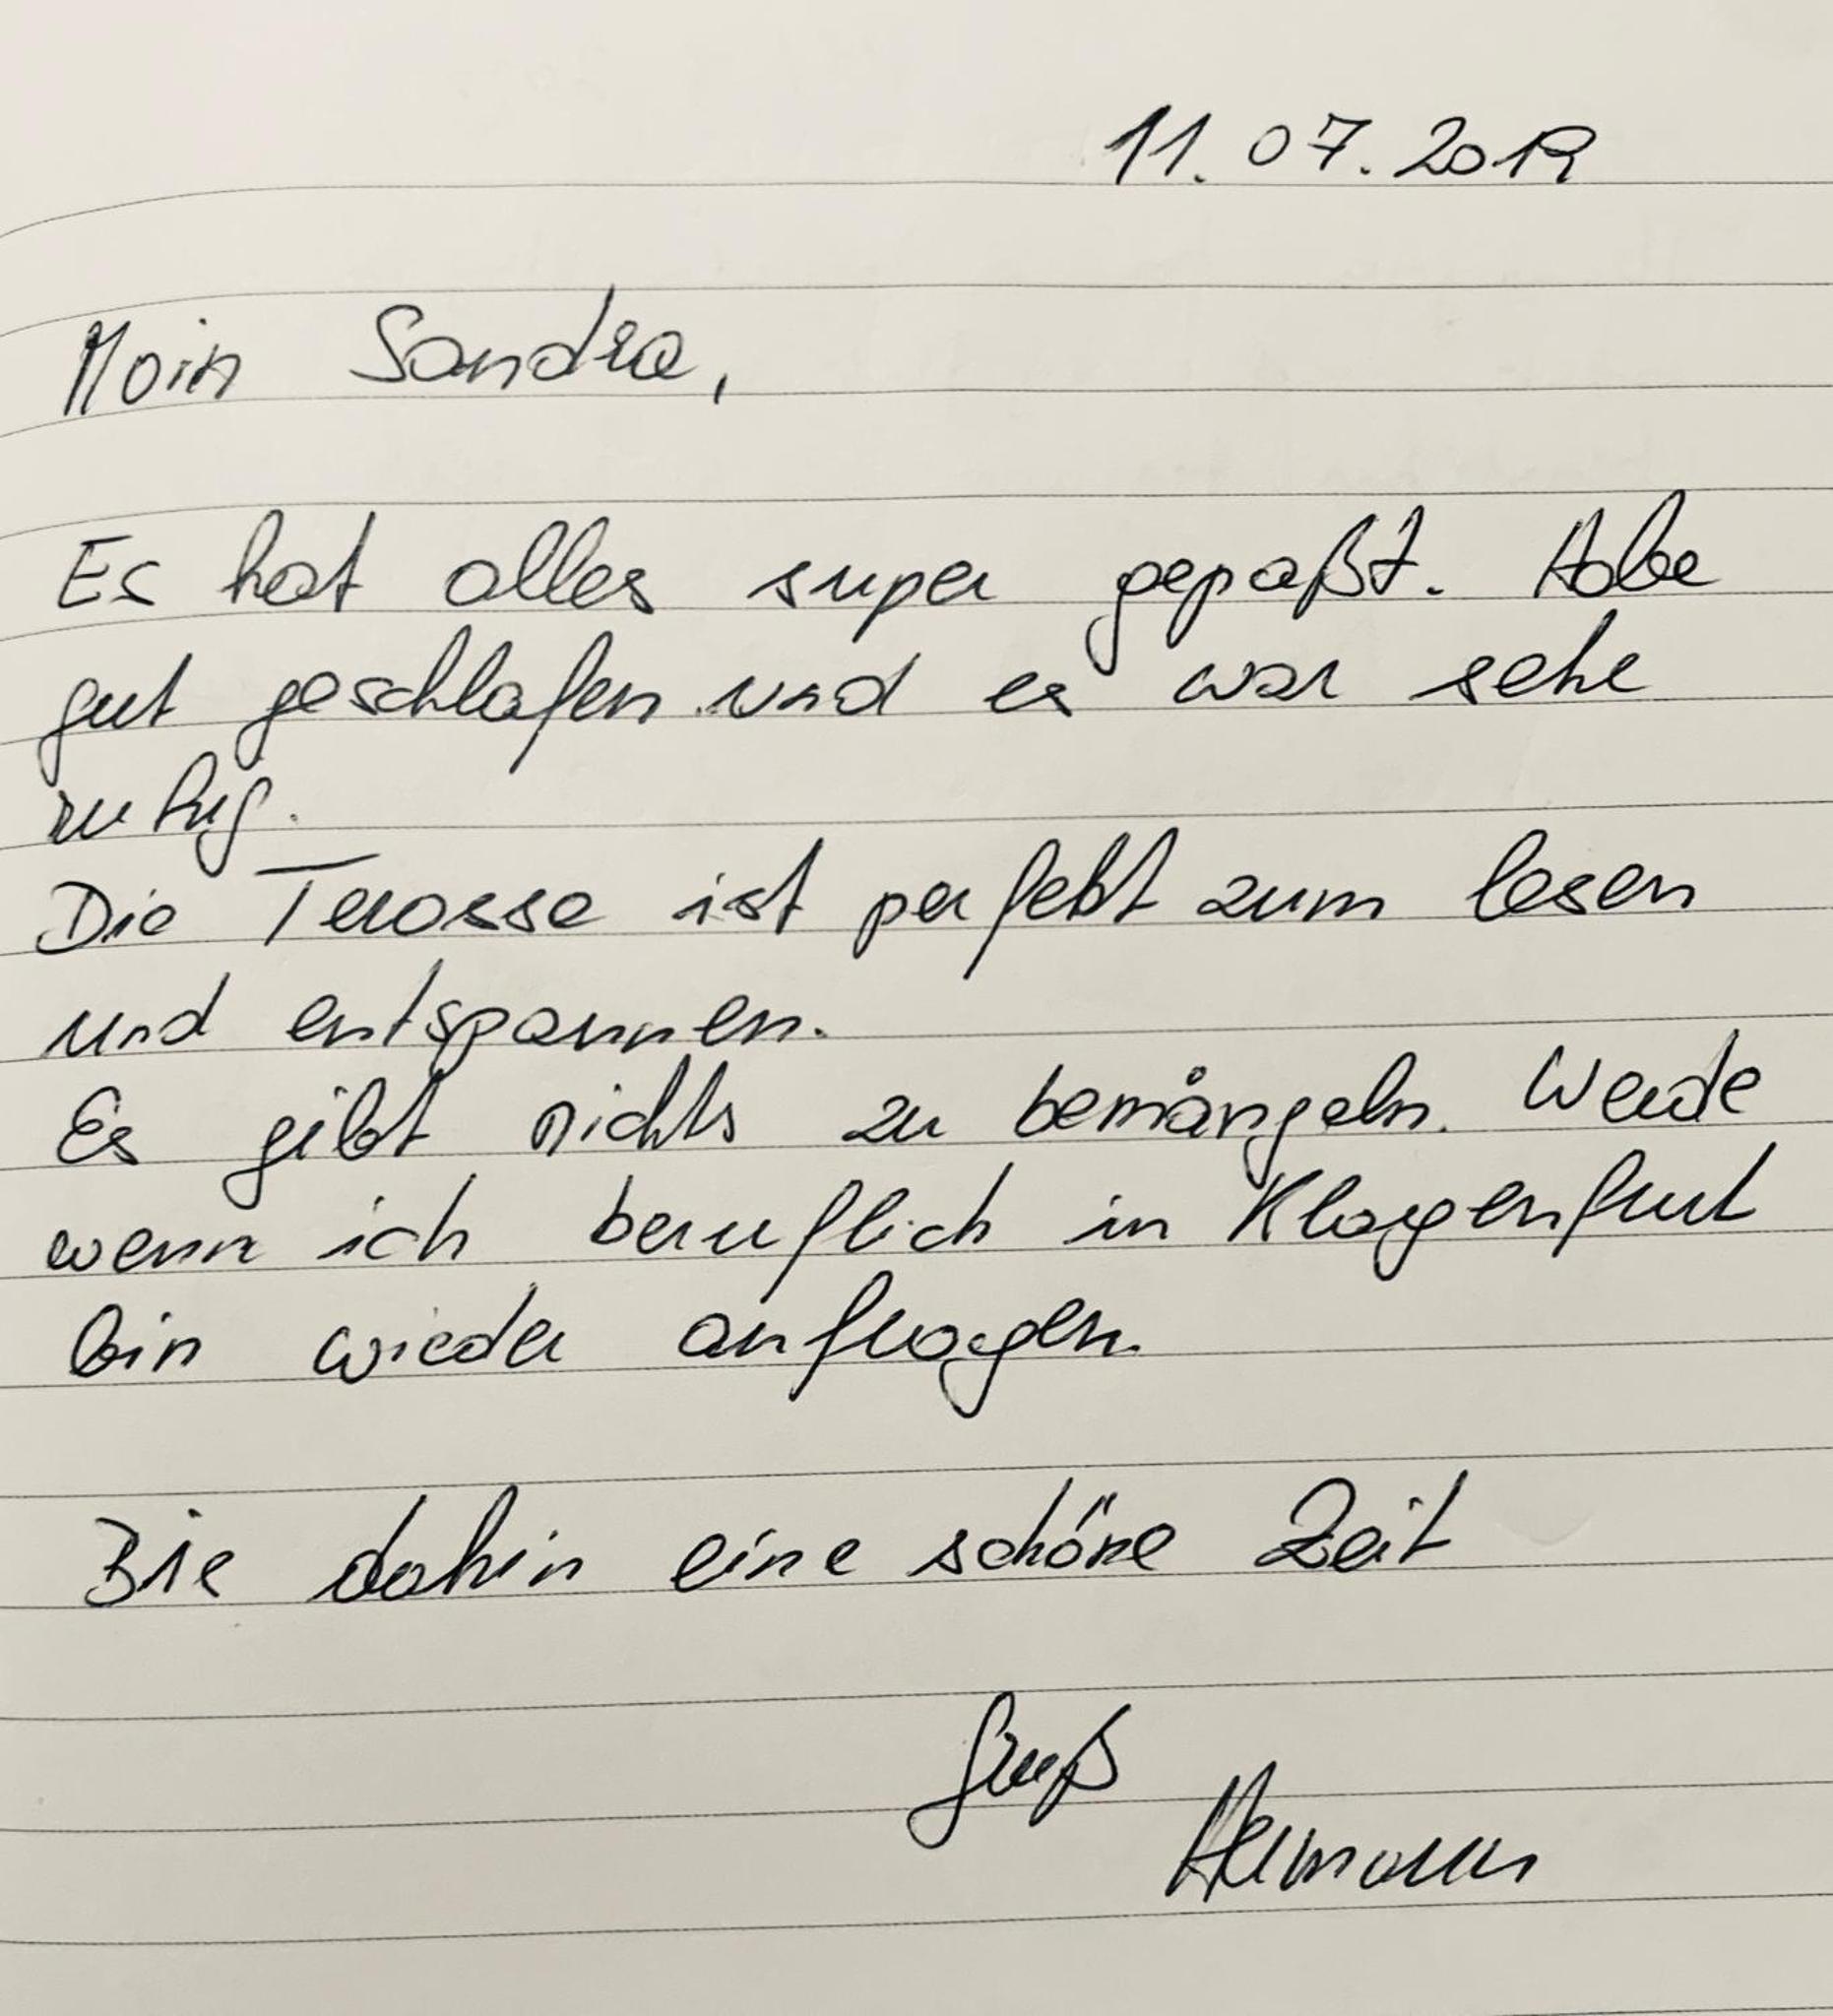 11.07.2019
Moin Sandra,
Es hat alles super gepaßt. Habe
gut geschlafen und es war sehr
ruhig.
Die Terasse ist perfekt zum lesen
und entspannen.
Es gibt nichts zu bemängeln. Werde
wenn ich beruflich in Klagenfurt
bin wieder anfragen.
Bis dahin eine schöne Zeit
Gruß
Hermann